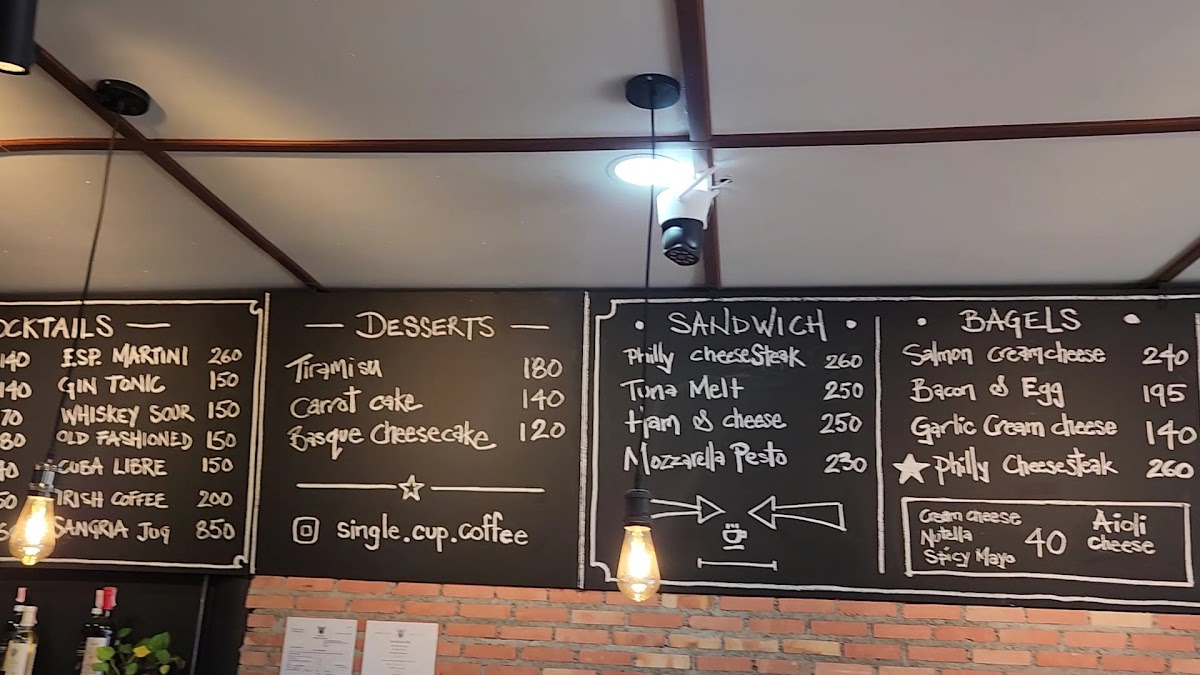 COCKTAILS
140 ESP. MARTINI 260
140 GIN TONIC 150
70 WHISKEY SOUR 150
80 OLD FASHIONED 150
40 CUBA LIBRE 150
50 IRISH COFFEE 200
SANGRIA JUG 850
DESSERTS
Tiramisu 180
Carrot cake 140
Basque Cheesecake 120
single.cup.coffee
SANDWICH
Philly cheeseSteak 260
Tuna Melt 250
Ham & cheese 250
Mozzarella Pesto 230
BAGELS
Salmon creamcheese 240
Bacon & Egg 195
Garlic Cream cheese 140
Philly CheeseSteak 260
Cream cheese
Nutella
Spicy Mayo
40
Aioli
cheese